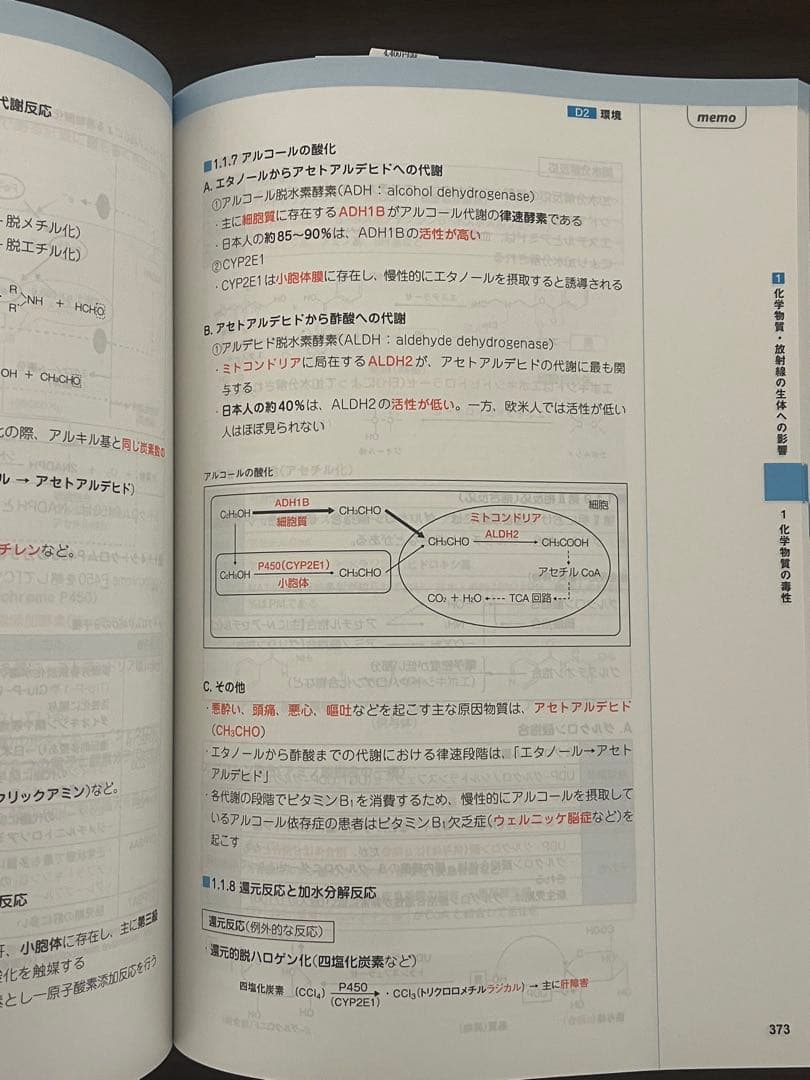 代謝反応
脱メチル化)
脱エチル化)
R
R'
NH + HCHO
OH + CH₃CHO
の際、アルキル基と同じ炭素数の
ル → アセトアルデヒド)
チレンなど。
クリックアミン)など。
反応
小胞体に存在し、主に第三級
化を触媒する
とし一原子酸素添加反応を行う
D2 環境
memo
■1.1.7 アルコールの酸化
A. エタノールからアセトアルデヒドへの代謝
①アルコール脱水素酵素(ADH：alcohol dehydrogenase)
・主に細胞質に存在するADH1Bがアルコール代謝の律速酵素である
・日本人の約85～90%は、ADH1Bの活性が高い
②CYP2E1
・CYP2E1は小胞体膜に存在し、慢性的にエタノールを摂取すると誘導される
B. アセトアルデヒドから酢酸への代謝
①アルデヒド脱水素酵素(ALDH：aldehyde dehydrogenase)
・ミトコンドリアに局在するALDH2が、アセトアルデヒドの代謝に最も関
与する
・日本人の約40%は、ALDH2の活性が低い。一方、欧米人では活性が低い
人はほぼ見られない
アルコールの酸化
細胞
C₂H₅OH
ADH1B
細胞質
CH₃CHO
C₂H₅OH
P450(CYP2E1)
小胞体
CH₃CHO
ミトコンドリア
CH₃CHO
ALDH2
CH₃COOH
アセチル CoA
CO₂ + H₂O
TCA 回路
C. その他
・悪酔い、頭痛、悪心、嘔吐などを起こす主な原因物質は、アセトアルデヒド
(CH₃CHO)
・エタノールから酢酸までの代謝における律速段階は、「エタノール→アセト
アルデヒド」
・各代謝の段階でビタミンB₁を消費するため、慢性的にアルコールを摂取して
いるアルコール依存症の患者はビタミンB₁欠乏症(ウェルニッケ脳症など)を
起こす
■1.1.8 還元反応と加水分解反応
還元反応(例外的な反応)
・還元的脱ハロゲン化(四塩化炭素など)
四塩化炭素 (CCl₄) P450 (CYP2E1) → ・CCl₃(トリクロロメチルラジカル) → 主に肝障害
1
化学物質・放射線の生体への影響
1 化学物質の毒性
373